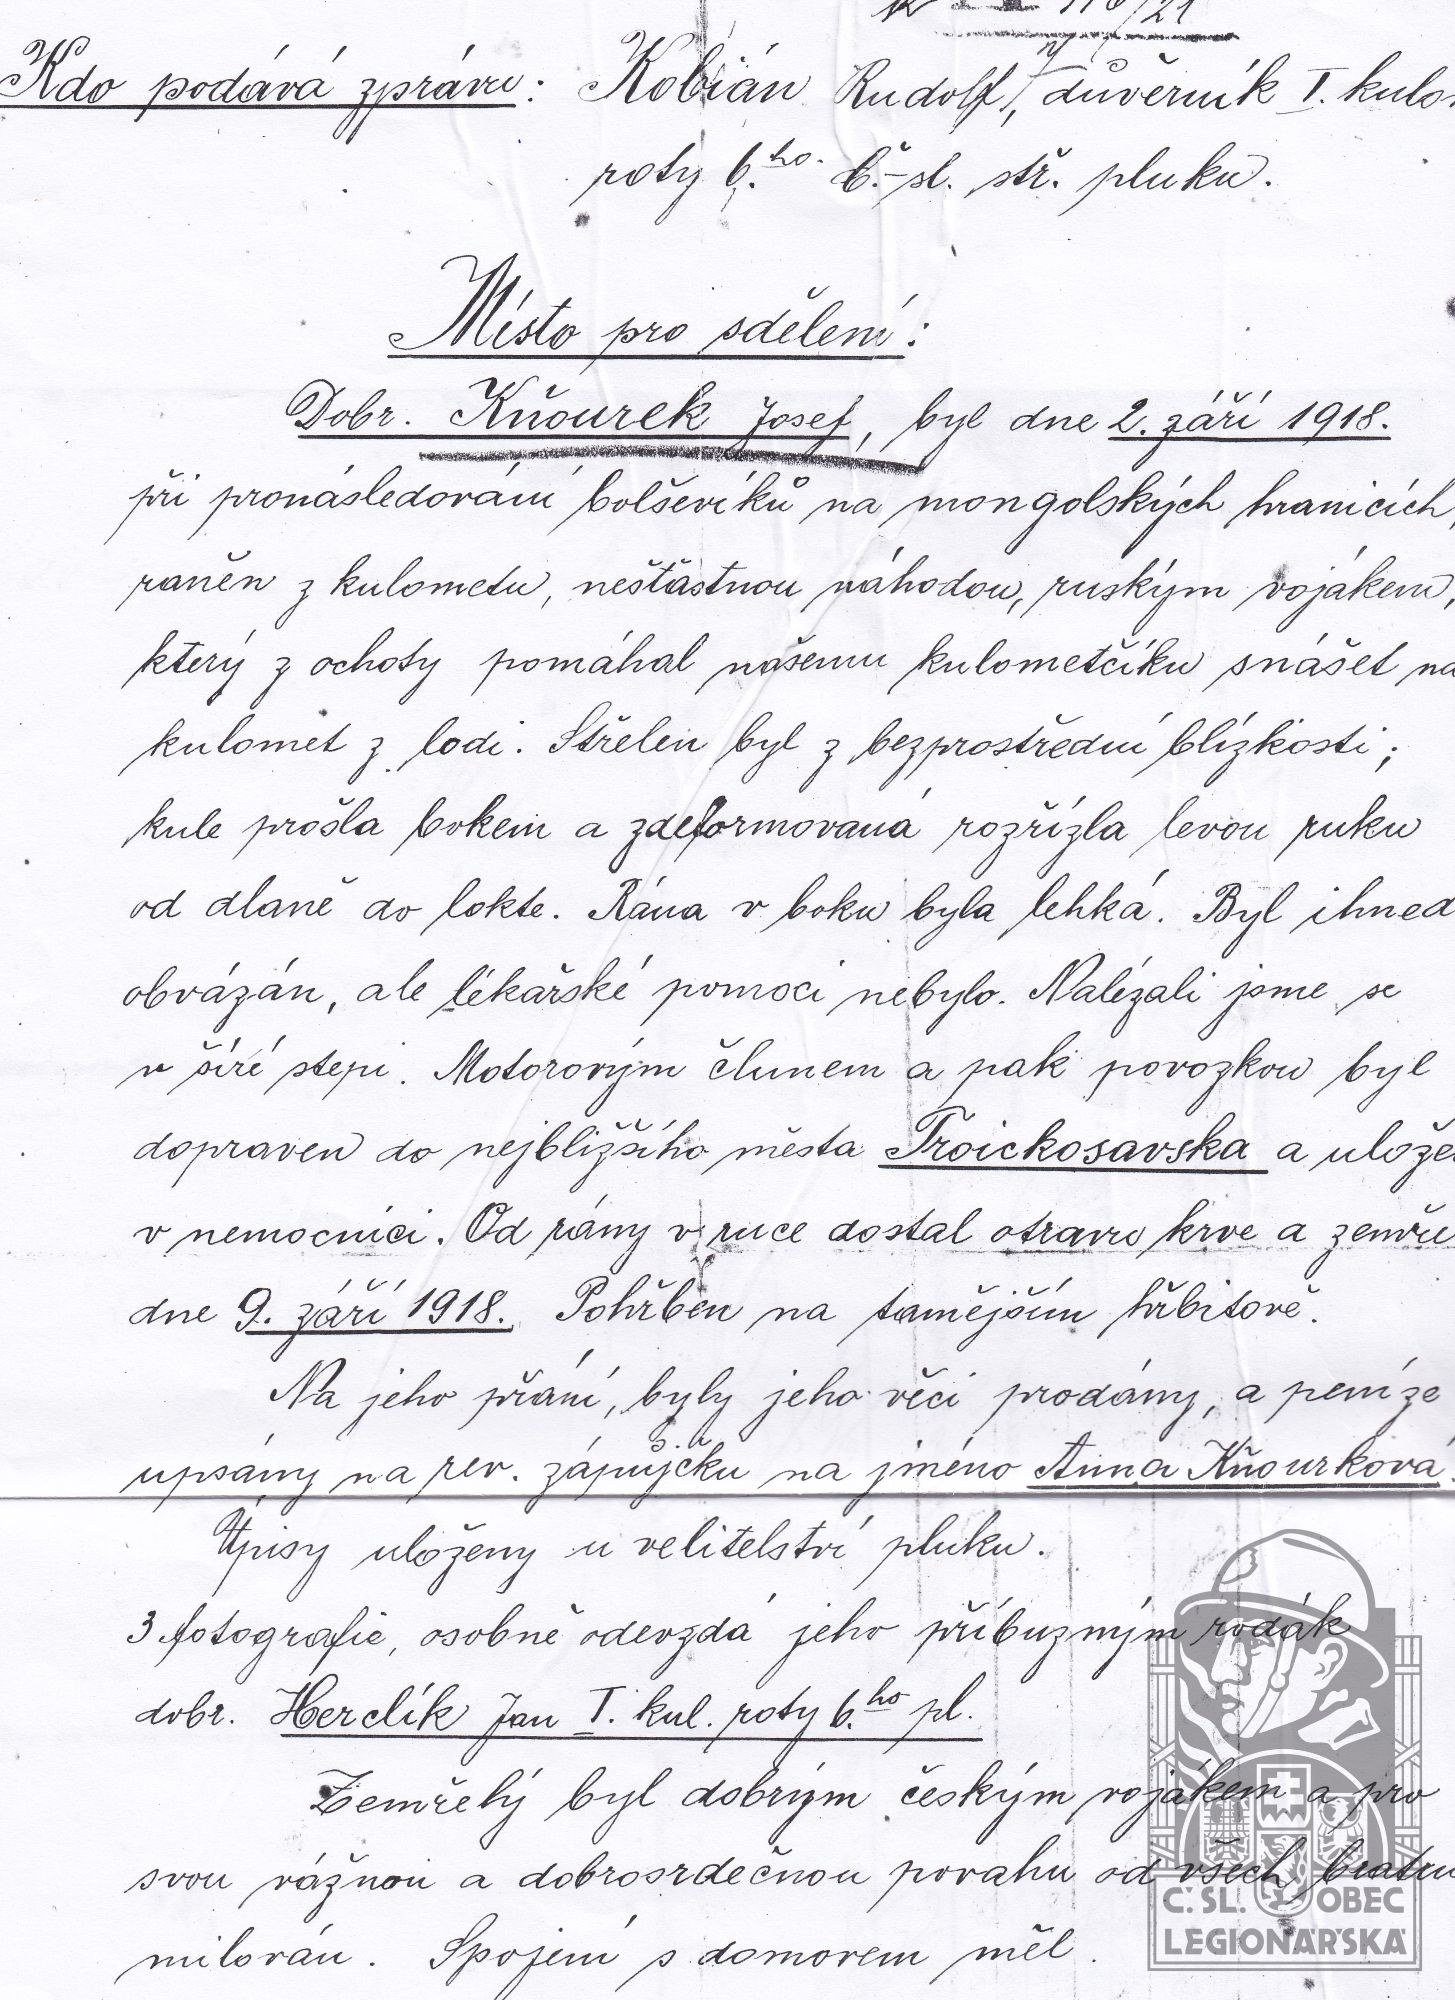 116/21
Kdo podává zprávu: Kobián Rudolf, důvěrník I. kulo
roty 6.ho č.-sl. stř. pluku.
Místo pro sdělení:
Dobr. Kňourek Josef, byl dne 2. září 1918.
při pronásledování bolševíků na mongolských hranicích,
raněn z kulometu, nešťastnou náhodou, ruským vojákem,
který z ochoty pomáhal našemu kulometčíku snášet na
kulomet z lodi. Střelen byl z bezprostřední blízkosti;
kule prošla bokem a zdeformovaná rozřízla levou ruku
od dlaně do lokte. Rána v boku byla lehká. Byl ihned
obvázán, ale lékařské pomoci nebylo. Nalézali jsme se
v šíré stepi. Motorovým člunem a pak povozkou byl
dopraven do nejbližšího města Troickosavska a ulože
v nemocnici. Od rány v ruce dostal otravu krve a zemře
dne 9. září 1918. Pohřben na tamějším hřbitově.
Na jeho přání, byly jeho věci prodány, a peníze
upsány na rev. zápůjčku na jméno Anna Kňourková.
Úpisy uloženy u velitelství pluku.
3 fotografie, osobně odevzdá jeho příbuzným rodák
dobr. Herclík Jan I. kul. roty 6.ho pl.
Zemřelý byl dobrým českým vojákem a pro
svou vážnou a dobrosrdečnou povahu od všech bratru
milován. Spojení s domovem měl.
Č. SL. OBEC
LEGIONÁŘSKÁ